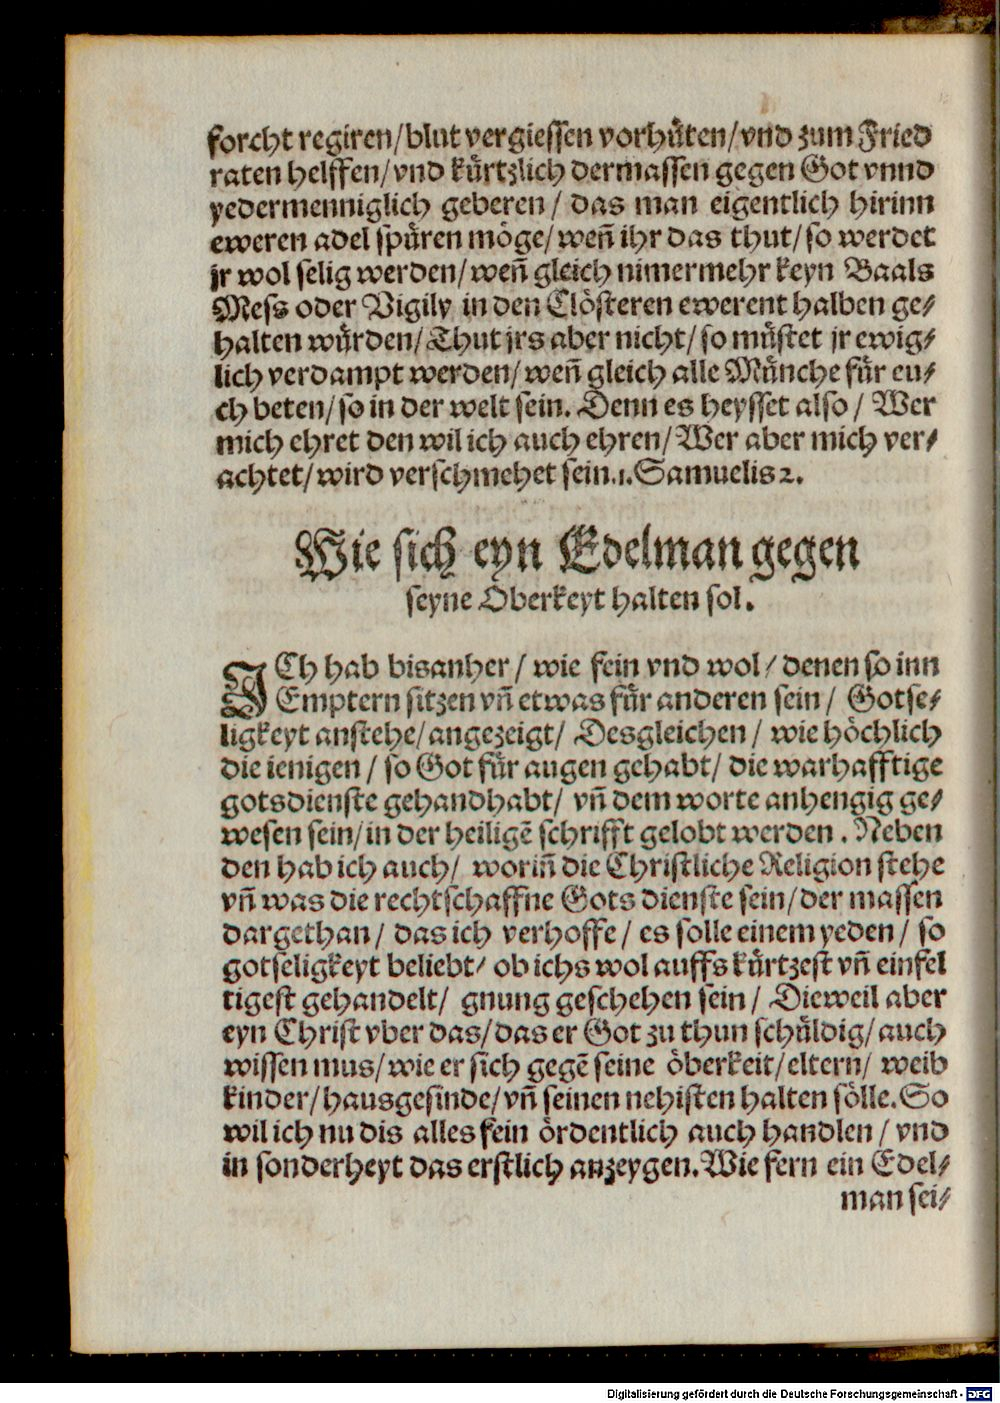 forcht regiren/blut vergiessen vorhuͤten/vnd zum Fried
raten helffen/vnd kuͤrtzlich dermassen gegen Got vnnd
yedermenniglich geberen/ das man eigentlich hirinn
eweren adel spuͤren moͤge/weñ ihr das thut/so werdet
jr wol selig werden/weñ gleich nimermehr keyn Baals
Mess oder Vigily in den Cloͤsteren ewerent halben ge⸗
halten wuͤrden/Thut jrs aber nicht/so muͤstet jr ewig⸗
lich verdampt werden/weñ gleich alle Muͤnche fuͤr eu⸗
ch beten/so in der welt sein. Denn es heysset also/ Wer
mich ehret den wil ich auch ehren/Wer aber mich ver⸗
achtet/wird verschmehet sein.1.Samuelis 2.
Wie sich eyn Edelman gegen
seyne Oberkeyt halten sol.
ICh hab bisanher/ wie fein vnd wol/ denen so inn
Emptern sitzen vñ etwas fuͤr anderen sein/ Gotse⸗
ligkeyt anstehe/angezeigt/ Desgleichen/ wie hoͤchlich
die ienigen/ so Got fuͤr augen gehabt/ die warhafftige
gotsdienste gehandhabt/ vñ dem worte anhengig ge⸗
wesen sein/in der heiligẽ schrifft gelobt werden. Neben
den hab ich auch/ woriñ die Christliche Religion stehe
vñ was die rechtschaffne Gots dienste sein/der massen
dargethan/ das ich verhoffe/ es solle einem yeden/ so
gotseligkeyt beliebt/ ob ichs wol auffs kuͤrtzest vñ einfel
tigest gehandelt/ gnung geschehen sein/ Dieweil aber
eyn Christ vber das/das er Got zu thun schuͤldig/auch
wissen mus/wie er sich gegẽ seine oͤberkeit/eltern/ weib
kinder/hausgesinde/vñ seinen nehisten halten soͤlle.So
wil ich nu dis alles fein oͤrdentlich auch handlen/ vnd
in sonderheyt das erstlich anzeygen.Wie fern ein Edel⸗
man sei⸗
Digitalisierung gefördert durch die Deutsche Forschungsgemeinschaft - DFG